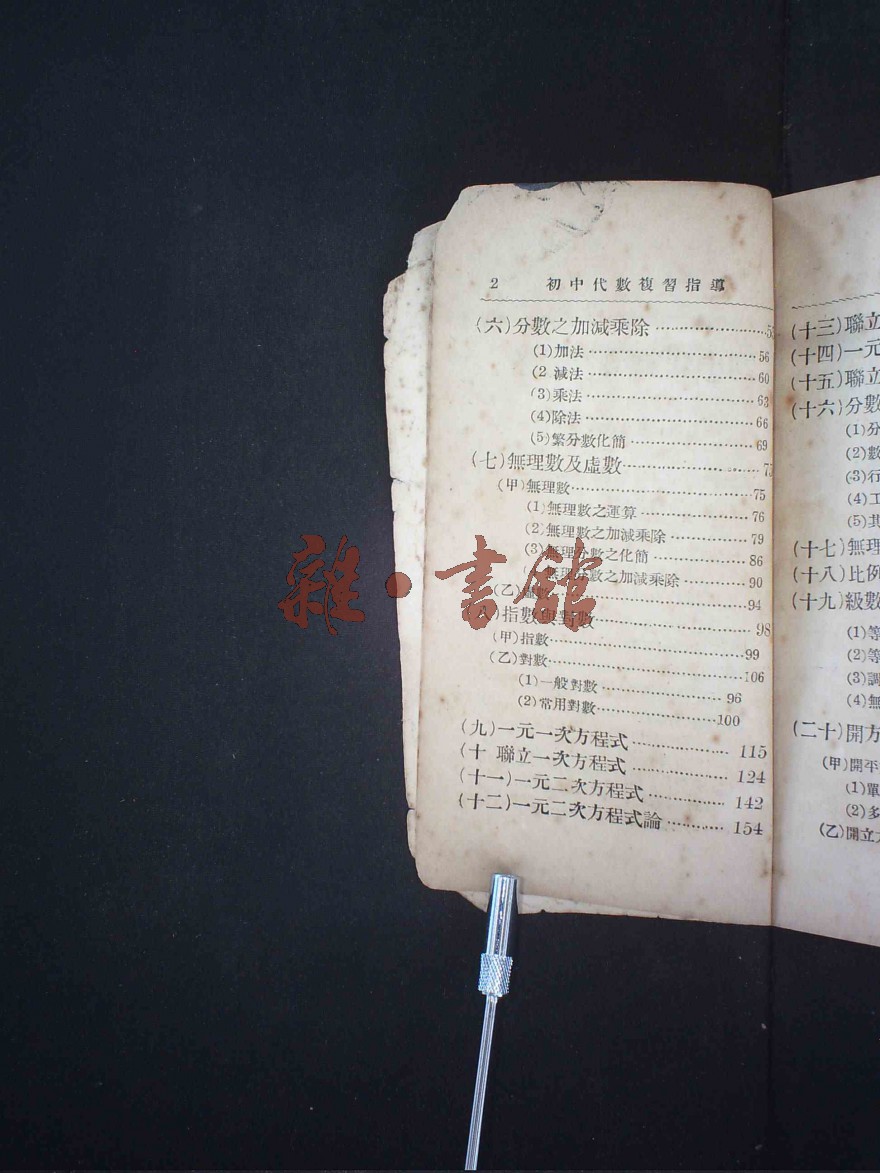 2 初中代數複習指導
(六)分數之加減乘除
(1)加法 56
(2 減法 60
(3)乘法 63
(4)除法 66
(5)繁分數化簡 69
(七)無理數及虛數
(甲)無理數 75
(1)無理數之運算 76
(2)無理數之加減乘除 79
(3)無理分數之化簡 86
無理分數之加減乘除 90
(乙)虛數 94
八)指數與對數 98
(甲)指數 99
(乙)對數 106
(1)一般對數 96
(2)常用對數 100
(九)一元一次方程式 115
(十 聯立一次方程式 124
(十一)一元二次方程式 142
(十二)一元二次方程式論 154
(十三)聯立
(十四)一元
(十五)聯立
(十六)分數
(1)分
(2)數
(3)行
(4)工
(5)其
(十七)無理
(十八)比例
(十九)級數
(1)等
(2)等
(3)調
(4)無
(二十)開方
(甲)開平
(1)單
(2)多
(乙)開立
雜·書館